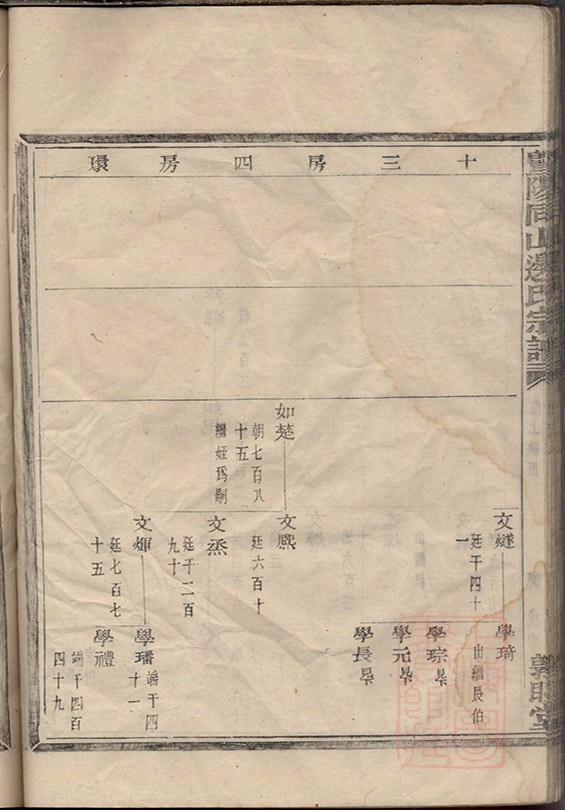 暨陽同山邊氏宗譜
敦睦堂
十三房四房環
如楚
朝七百八
十五
繼姪為嗣
文燧
廷千四十
一
文熙
廷六百十
文烝
廷千二百
九十
文煇
廷七百七
十五
學琦
出繼長伯
學琮 早卒
學元 早卒
學長 早卒
學璠
端千四
十一
學禮
端千四百
四十九